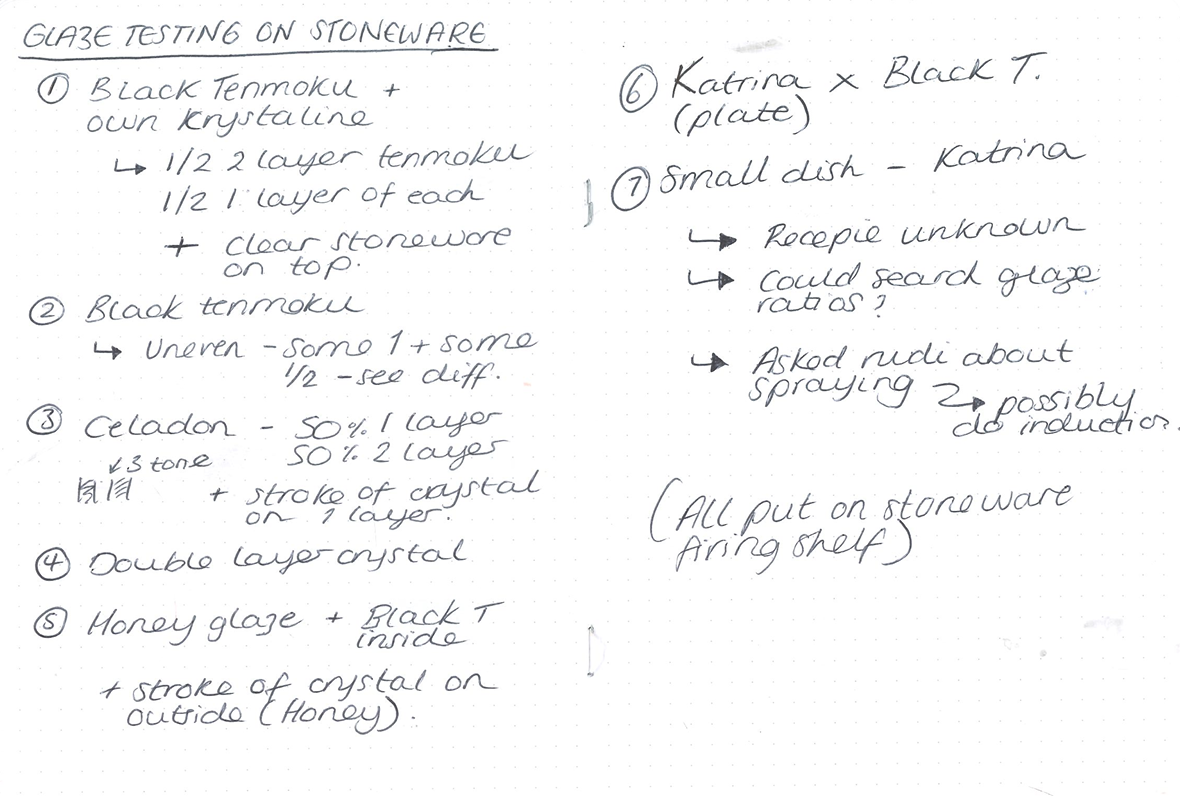 GLAZE TESTING ON STONEWARE
① Black Tenmoku +
own krystaline
↳ 1/2 2 layer tenmoku
1/2 1 layer of each
+ clear stoneware
on top.
② Black tenmoku
↳ uneven - some 1 + some
1/2 - see diff.
③ Celadon - 50% 1 layer
50% 2 layer
↙ 3 tone
+ stroke of crystal
on 1 layer.
④ Double layer crystal
⑤ Honey glaze + Black T
inside
+ stroke of crystal on
outside (Honey).
⑥ Katrina x Black T.
(plate)
⑦ Small dish - Katrina
↳ Recepie unknown
↳ Could search glaze
ratios?
↳ Asked rudi about
spraying ↳ possibly
do induction.
(All put on stoneware
firing shelf)